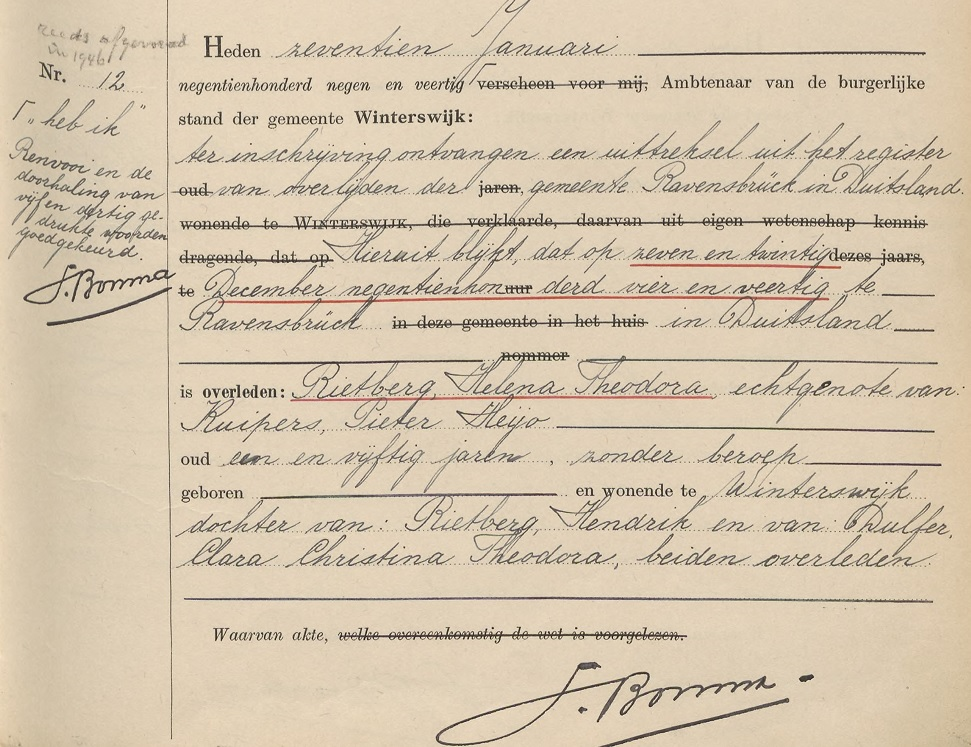 reeds afgevoerd
in 1946
Nr. 12
Γ "heb ik"
Renvooi en de
doorhaling van
vijf en dertig ge-
drukte woorden
goedgekeurd.
S. Bomma
Heden zeventien Januari
negentienhonderd negen en veertig Γ verscheen voor mij, Ambtenaar van de burgerlijke
stand der gemeente Winterswijk:
ter inschrijving ontvangen een uittreksel uit het register
oud van overlijden der jaren, gemeente Ravensbrück in Duitsland.
wonende te WINTERSWIJK, die verklaarde, daarvan uit eigen wetenschap kennis
dragende, dat op Hieruit blijkt, dat op zeven en twintig dezes jaars,
te December negentienhon uur derd vier en veertig te
Ravensbrück in deze gemeente in het huis in Duitsland
nommer
is overleden: Rietberg, Helena Theodora, echtgenote van:
Kuipers, Pieter Heijo
oud een en vijftig jaren, zonder beroep
geboren en wonende te Winterswijk
dochter van: Rietberg, Hendrik en van: Dulfer,
Clara Christina Theodora, beiden overleden.
Waarvan akte, welke overeenkomstig de wet is voorgelezen.
S. Bomma